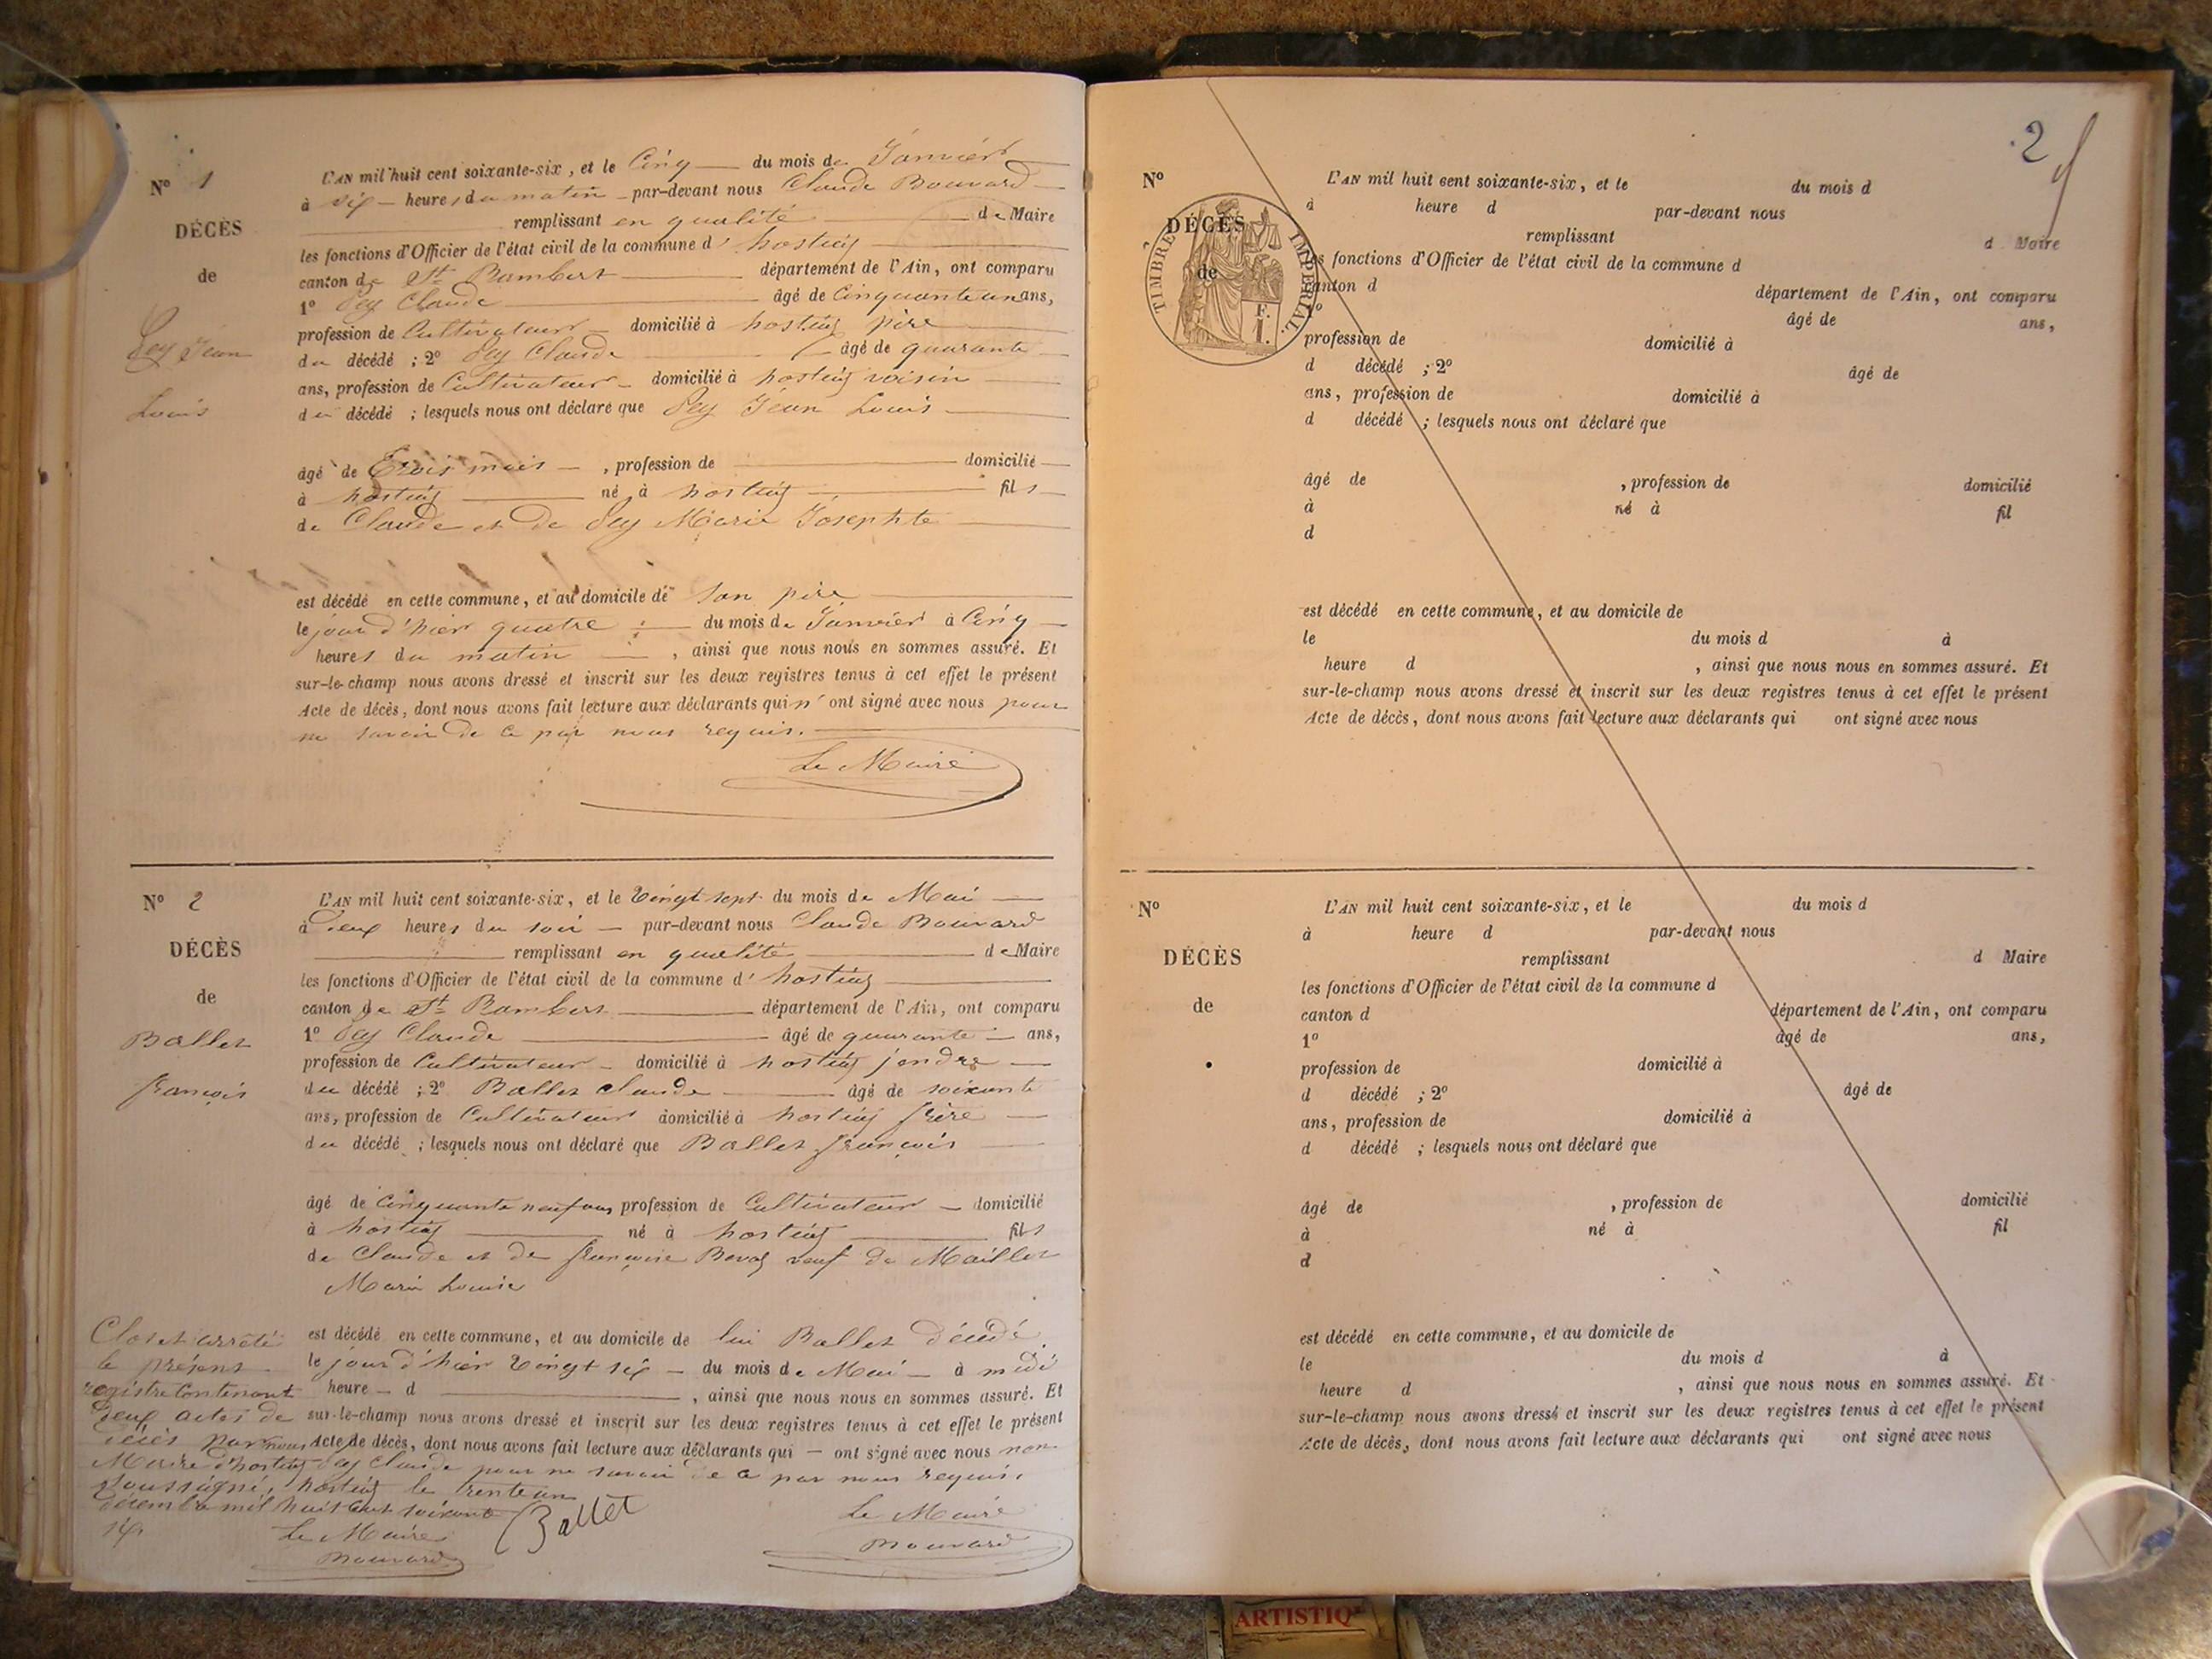 N° 1
DÉCÈS
de
Pey Jean
Louis
L'AN mil huit cent soixante-six, et le Cinq du mois de Janvier
à dix heures du matin par-devant nous Claude Bouvard
remplissant en qualité de Maire
les fonctions d'Officier de l'état civil de la commune d' hostiaz
canton de St Rambert département de l'Ain, ont comparu
1° Pey Claude âgé de Cinquante un ans,
profession de Cultivateur domicilié à hostiaz père
du décédé ; 2° Pey Claude âgé de quarante
ans, profession de Cultivateur domicilié à hostiaz voisin
du décédé ; lesquels nous ont déclaré que Pey Jean Louis
âgé de Trois mois , profession de domicilié
à hostiaz né à hostiaz fils
de Claude et de Pey Marie Josephte
est décédé en cette commune, et au domicile de son père
le jour d'hier quatre du mois de Janvier à Cinq
heures du matin , ainsi que nous nous en sommes assuré. Et
sur-le-champ nous avons dressé et inscrit sur les deux registres tenus à cet effet le présent
Acte de décès, dont nous avons fait lecture aux déclarants qui n' ont signé avec nous pour
ne savoir de ce par nous requis.
Le Maire
N° 2
DÉCÈS
de
Ballet
françois
L'AN mil huit cent soixante-six, et le Vingt sept du mois de Mai
à Deux heures du soir par-devant nous Claude Bouvard
remplissant en qualité de Maire
les fonctions d'Officier de l'état civil de la commune d' hostiaz
canton de St Rambert département de l'Ain, ont comparu
1° Pey Claude âgé de quarante ans,
profession de Cultivateur domicilié à hostiaz jendre
du décédé ; 2° Ballet Claude âgé de soixante
ans, profession de Cultivateur domicilié à hostiaz frère
du décédé ; lesquels nous ont déclaré que Ballet françois
âgé de Cinquante neuf ans, profession de Cultivateur domicilié
à hostiaz né à hostiaz fils
de Claude et de françoise veuf de Maillet
Marie Louise
est décédé en cette commune, et au domicile de lui Ballet décédé
le jour d'hier Vingt six du mois de Mai à midi
heure d , ainsi que nous nous en sommes assuré. Et
sur-le-champ nous avons dressé et inscrit sur les deux registres tenus à cet effet le présent
Acte de décès, dont nous avons fait lecture aux déclarants qui ont signé avec nous non
Pey Claude pour ne savoir de ce par nous requis.
Ballet
Le Maire
Bouvard
Clos et arrêté
le présent
registre Contenant
Deux actes de
décès par nous
Maire d'hostiaz
soussigné, hostiaz le trente un
décembre mil huit cent soixante
six
Le Maire
Bouvard
2
N°
DÉCÈS
de
TIMBRE IMPERIAL
1 F.
L'AN mil huit cent soixante-six, et le du mois d
à heure d par-devant nous
remplissant d Maire
les fonctions d'Officier de l'état civil de la commune d
canton d département de l'Ain, ont comparu
1° âgé de ans,
profession de domicilié à
d décédé ; 2° âgé de
ans, profession de domicilié à
d décédé ; lesquels nous ont déclaré que
âgé de , profession de domicilié
à né à fil
d
est décédé en cette commune, et au domicile de
le du mois d à
heure d , ainsi que nous nous en sommes assuré. Et
sur-le-champ nous avons dressé et inscrit sur les deux registres tenus à cet effet le présent
Acte de décès, dont nous avons fait lecture aux déclarants qui ont signé avec nous
N°
DÉCÈS
de
L'AN mil huit cent soixante-six, et le du mois d
à heure d par-devant nous
remplissant d Maire
les fonctions d'Officier de l'état civil de la commune d
canton d département de l'Ain, ont comparu
1° âgé de ans,
profession de domicilié à
d décédé ; 2° âgé de
ans, profession de domicilié à
d décédé ; lesquels nous ont déclaré que
âgé de , profession de domicilié
à né à fil
d
est décédé en cette commune, et au domicile de
le du mois d à
heure d , ainsi que nous nous en sommes assuré. Et
sur-le-champ nous avons dressé et inscrit sur les deux registres tenus à cet effet le présent
Acte de décès, dont nous avons fait lecture aux déclarants qui ont signé avec nous
ARTISTIQ